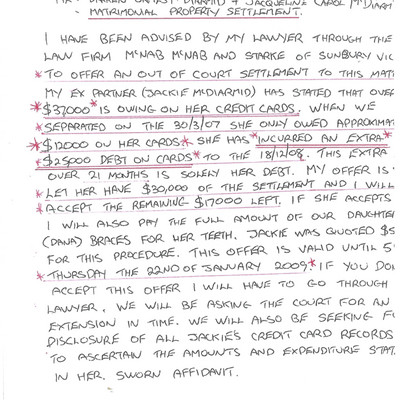 JACQUELINE CAROL McDIARM
- MATRIMONIAL PROPERTY SETTLEMENT.
I HAVE BEEN ADVISED BY MY LAWYER THROUGH THE
LAW FIRM McNAB McNAB AND STARKE OF SUNBURY VIC
*TO OFFER AN OUT OF COURT SETTLEMENT TO THIS MATT
MY EX PARTNER (JACKIE McDIARMID) HAS STATED THAT OVER
*$37000* IS OWING ON HER CREDIT CARDS. WHEN WE
*SEPARATED ON THE 30/3/07 SHE ONLY OWED APPROXIMAT
*$12000 ON HER CARDS* SHE HAS *INCURRED AN EXTRA*
*$25000 DEBT ON CARDS* TO THE 18/12/08. THIS EXTRA
OVER 21 MONTHS IS SOLELY HER DEBT. MY OFFER IS
*LET HER HAVE $30,000 OF THE SETTLEMENT AND I WILL
*ACCEPT THE REMAINING $17000 LEFT. IF SHE ACCEPTS
I WILL ALSO PAY THE FULL AMOUNT OF OUR DAUGHTE
(DANA) BRACES FOR HER TEETH. JACKIE WAS QUOTED $5
FOR THIS PROCEDURE. THIS OFFER IS VALID UNTIL 5
*THURSDAY THE 22ND OF JANUARY 2009.* IF YOU DON
ACCEPT THIS OFFER I WILL HAVE TO GO THROUGH
LAWYER. WE WILL BE ASKING THE COURT FOR AN
EXTENSION IN TIME. WE WILL ALSO BE SEEKING FU
DISCLOSURE OF ALL JACKIES CREDIT CARD RECORDS
TO ASCERTAIN THE AMOUNTS AND EXPENDITURE STAT
IN HER SWORN AFFIDAVIT.